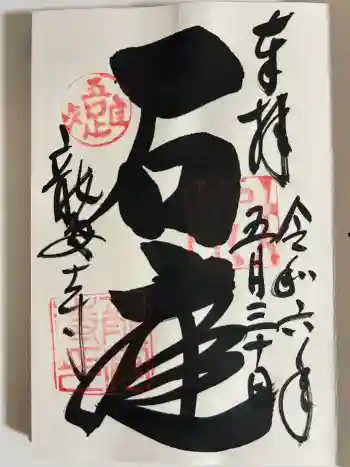 奉拝
令和六年
五月三十日
石庭
龍安寺
吾唯足知